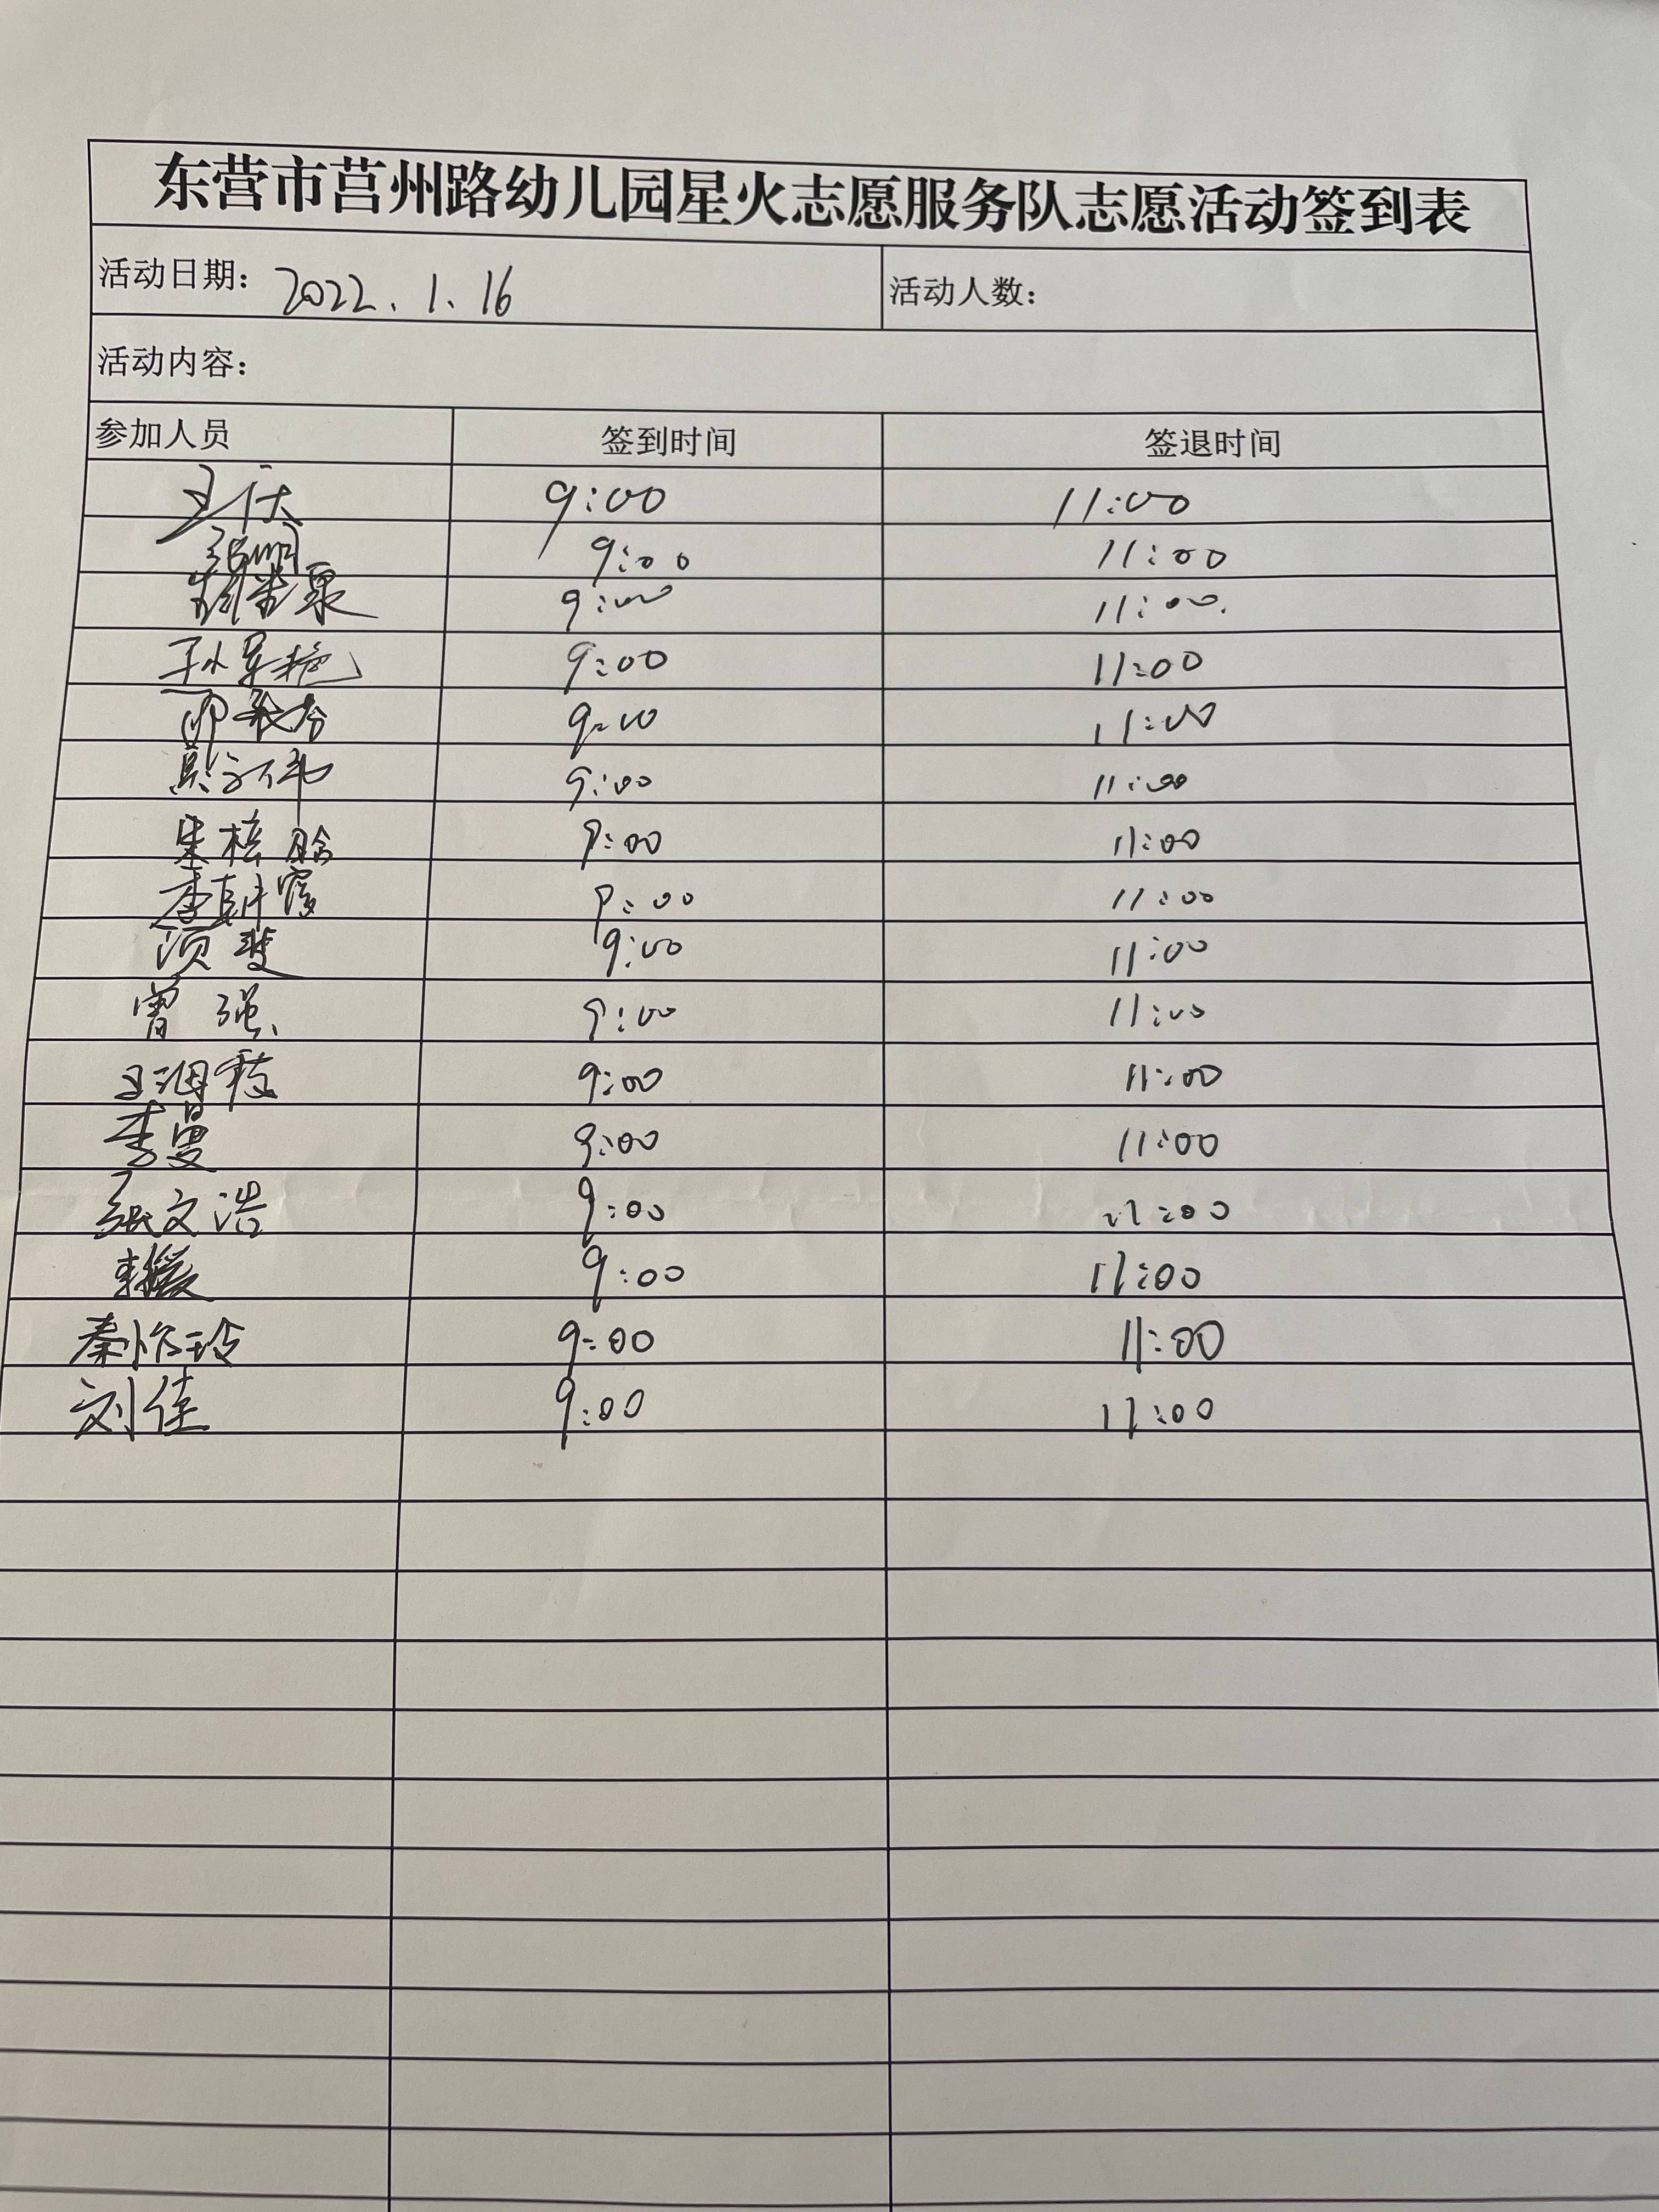 东营市莒州路幼儿园星火志愿服务队志愿活动签到表
活动日期: 2022.1.16 活动人数:
活动内容:
参加人员 签到时间 签退时间
9:00 11:00
9:00 11:00
9:00 11:00.
孙军艳 9:00 11:00
9:00 11:00
9:00 11:00
朱梓晗 9:00 11:00
9:00 11:00
项斐 9:00 11:00
曾强 9:00 11:00
9:00 11:00
李曼 9:00 11:00
张文浩 9:00 11:00
9:00 11:00
秦怡玲 9:00 11:00
刘佳 9:00 11:00